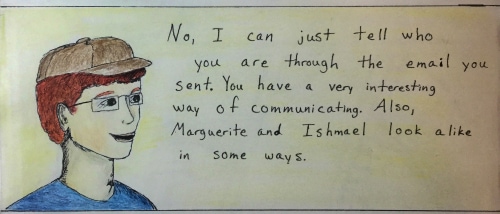 No, I can just tell who
you are through the email you
sent. You have a very interesting
way of communicating. Also,
Marguerite and Ishmael look alike
in some ways.